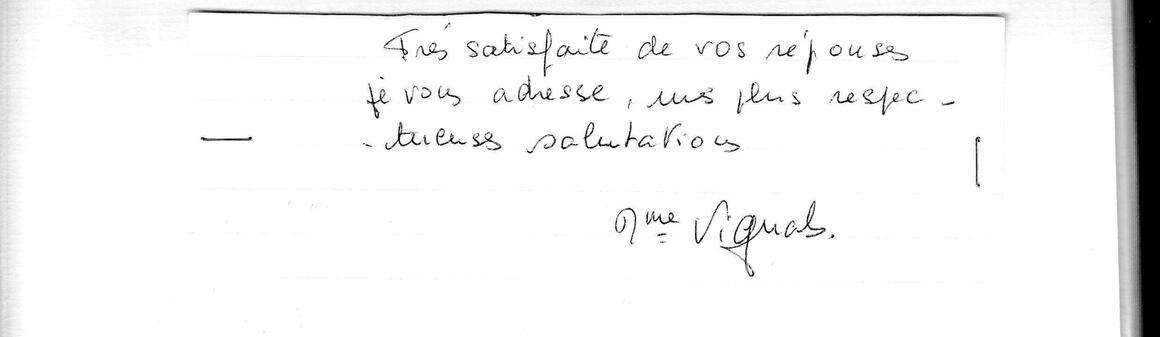 Très satisfaite de vos réponses
je vous adresse, mes plus respec-
-tueuses salutations
Mme Vignals.